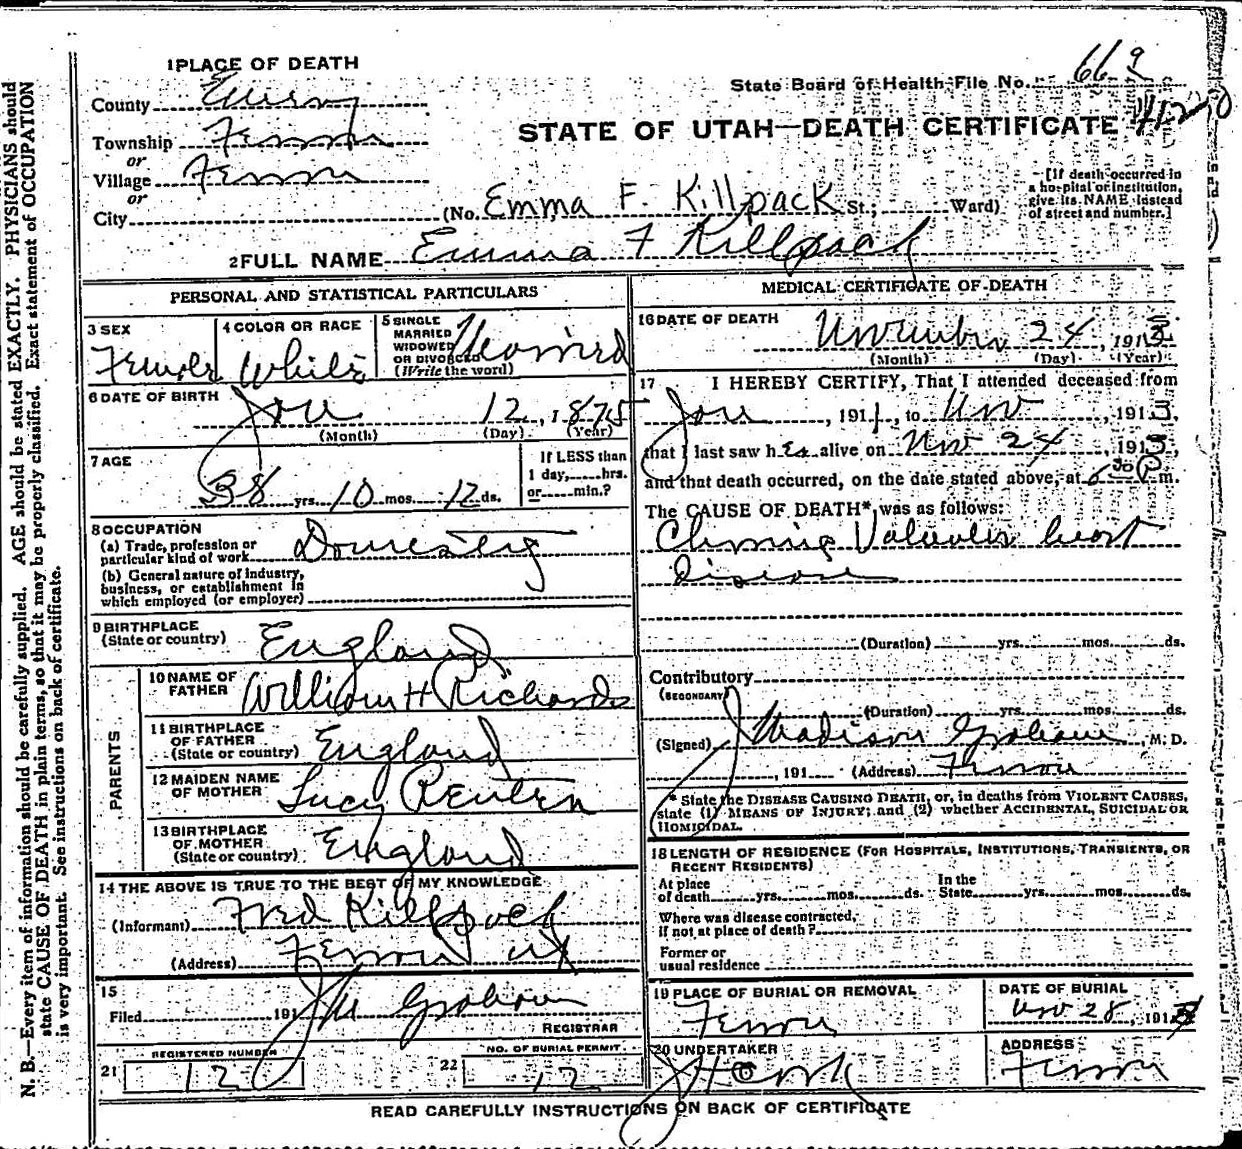 N. B.—Every item of information should be carefully supplied. AGE should be stated EXACTLY. PHYSICIANS should
state CAUSE OF DEATH in plain terms, so that it may be properly classified. Exact statement of OCCUPATION
is very important. See instructions on back of certificate.
1 PLACE OF DEATH
State Board of Health File No. 669
County Emery
STATE OF UTAH—DEATH CERTIFICATE
Township Ferron
or
Village Ferron
or
City
(No. Emma F. Killpack St.; Ward)
[If death occurred in
a hospital or institution,
give its NAME instead
of street and number.]
2 FULL NAME Emma F Killpack
PERSONAL AND STATISTICAL PARTICULARS
3 SEX
Female
4 COLOR OR RACE
White
5 SINGLE
MARRIED
WIDOWED
OR DIVORCED
(Write the word)
Married
6 DATE OF BIRTH
Jan 12, 1875
(Month) (Day) (Year)
7 AGE
38 yrs. 10 mos. 12 ds.
If LESS than
1 day, hrs.
or min.?
8 OCCUPATION
(a) Trade, profession or
particular kind of work
(b) General nature of industry,
business, or establishment in
which employed (or employer)
9 BIRTHPLACE
(State or country) England
PARENTS
10 NAME OF
FATHER William H Richards
11 BIRTHPLACE
OF FATHER
(State or country) England
12 MAIDEN NAME
OF MOTHER Lucy
13 BIRTHPLACE
OF MOTHER
(State or country) England
14 THE ABOVE IS TRUE TO THE BEST OF MY KNOWLEDGE
(Informant) Fred Killpack
(Address) Ferron Ut
15
Filed 191
REGISTRAR
21 REGISTERED NUMBER
12
22 NO. OF BURIAL PERMIT
12
MEDICAL CERTIFICATE OF DEATH
16 DATE OF DEATH
November 24, 1913
(Month) (Day) (Year)
17 I HEREBY CERTIFY, That I attended deceased from
Jan, 1911, to Nov, 1913,
that I last saw h er alive on Nov 24, 1913,
and that death occurred, on the date stated above, at 6 30 P m.
The CAUSE OF DEATH* was as follows:
Chronic Valvular heart
disease
(Duration) yrs. mos. ds.
Contributory
(SECONDARY)
(Duration) yrs. mos. ds.
(Signed) J Madison Graham, M. D.
, 191 (Address) Ferron
* State the DISEASE CAUSING DEATH, or, in deaths from VIOLENT CAUSES,
state (1) MEANS OF INJURY; and (2) whether ACCIDENTAL, SUICIDAL OR
HOMICIDAL.
18 LENGTH OF RESIDENCE (FOR HOSPITALS, INSTITUTIONS, TRANSIENTS, OR
RECENT RESIDENTS)
At place
of death yrs. mos. ds.
In the
State yrs. mos. ds.
Where was disease contracted,
if not at place of death?
Former or
usual residence
19 PLACE OF BURIAL OR REMOVAL
Ferron
DATE OF BURIAL
Nov 28, 1913
20 UNDERTAKER
ADDRESS
Ferron
READ CAREFULLY INSTRUCTIONS ON BACK OF CERTIFICATE